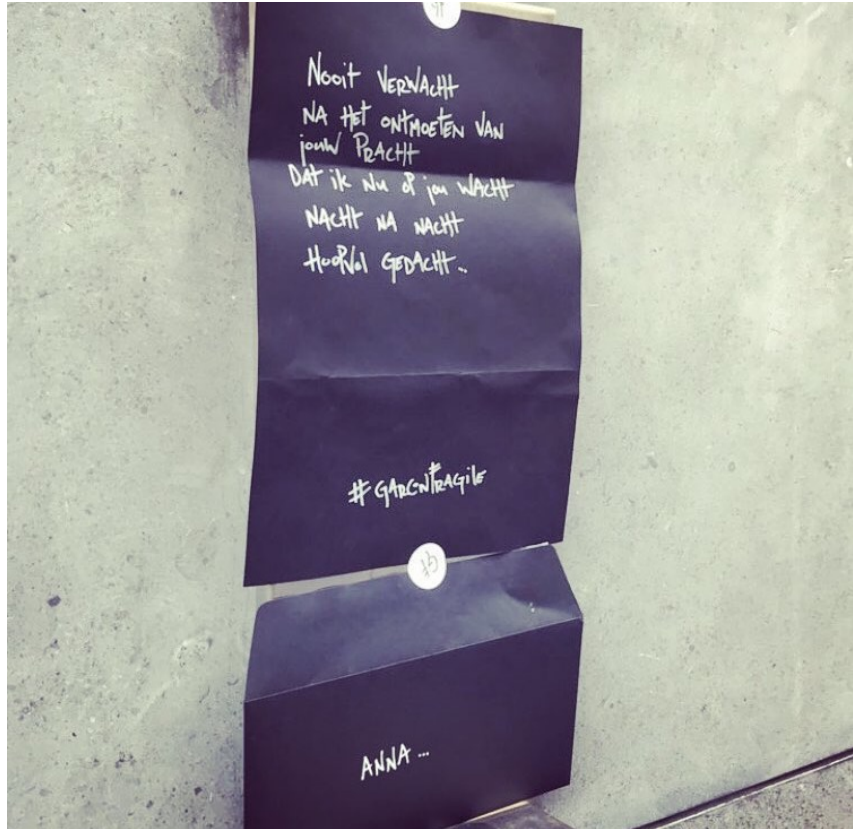 Nooit VERWACHT
NA HET ONTMOETEN VAN
jouw PRACHT
DAT ik Nu op jou WACHT
NACHT NA NACHT
HOOPVol GEDACHT...
ANNA...